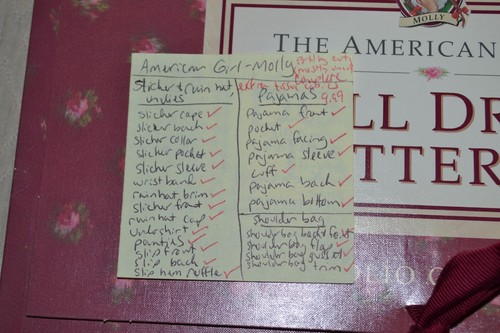 MOLLY
THE AMERICAN
LL DR
TTER
OLIO
American Girl-Molly
mostly uncut
complete
9.99
Slicker & rain hat
undies
slicker cape ✓
slicker back ✓
slicker collar ✓
slicker pocket ✓
slicker sleeve ✓
wristband ✓
rain hat brim ✓
slicker front ✓
rain hat cap ✓
undershirt ✓
panties ✓
slip front ✓
slip back ✓
slip hem ruffle ✓
pajamas
pajama front ✓
pocket ✓
pajama facing ✓
pajama sleeve ✓
cuff ✓
pajama back ✓
pajama bottom ✓
shoulder bag
shoulder bag back & front ✓
shoulder bag flap ✓
shoulder bag gusset ✓
shoulder bag trim ✓